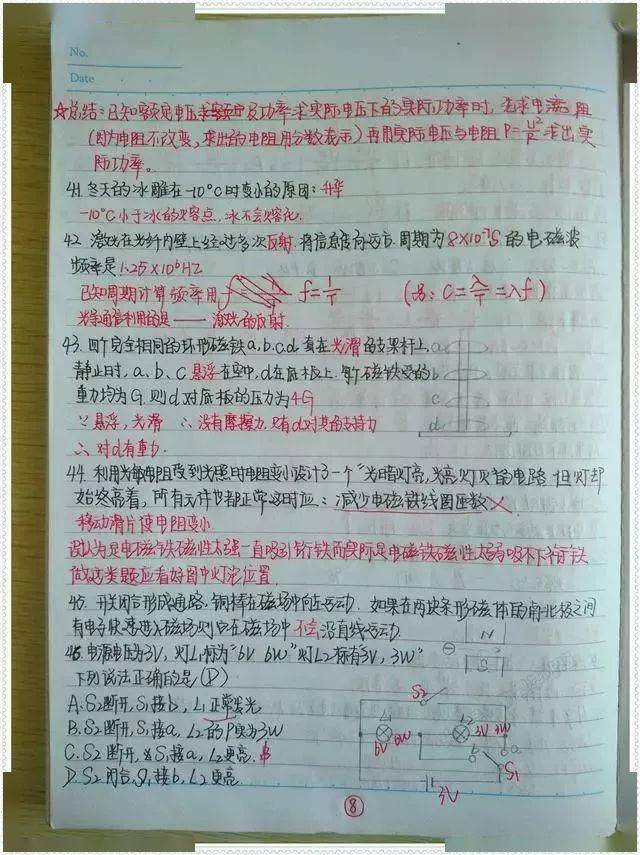 No.
Date
☆总结:已知额定电压及功率求实际电压下的实际功率时,先求电阻
(因为电阻不改变,求出的电阻用分数表示)再用实际电压与电阻P=U²/R求出实
际功率。
41.冬天的冰雕在-10℃时变小的原因:升华
-10℃小于冰的熔点,冰不会熔化.
42.激光在光纤内壁上经过多次反射.将信息传向远方.周期为8×10⁻⁷S的电磁波
频率是1.25×10⁶HZ
已知周期计算频率用 f=1/T (另:C=λ/T=λf)
光纤通信利用的是——激光的反射.
43.四个完全相同的环形磁铁a、b、c、d套在光滑的支架杆上
静止时,a、b、c悬浮在空中,d在底板上.每个磁铁受的
重力均为G.则d对底板的压力为4G
∵悬浮,光滑 ∴没有摩擦力.只有d对其的支持力
∴对d有重力.
a
b
c
d
44.利用光敏电阻受到光照时电阻变小设计了一个"光暗灯亮,光亮灯灭"的电路.但灯却
始终亮着,所有元件也都正常这时应:减少电磁铁线圈匝数×.
移动滑片使电阻变小
误认为是电磁铁磁性太强一直吸引衔铁而实际是电磁铁磁性太弱吸不下衔铁
做这类题应看好图中灯泡位置.
45.开关闭合形成通路,铜棒在磁场中向左运动.如果在两块条形磁体的南北极之间
有电子快速进入磁场则它在磁场中不会沿直线运动
N
S
46.电源电压为3V,灯L₁标为"6V 6W"灯L2标有"3V,3W"
下列说法正确的是(D)
A.S2断开,S₁接b,L₁正常发光
B.S2断开,S₁接a,L2的P实为3W
C.S2断开,S₁接a,L2更亮.
D.S2闭合,S₁接b,L2更亮
S2
L₁
6V 6W
L2
3V 3W
a
b
S1
3V
8